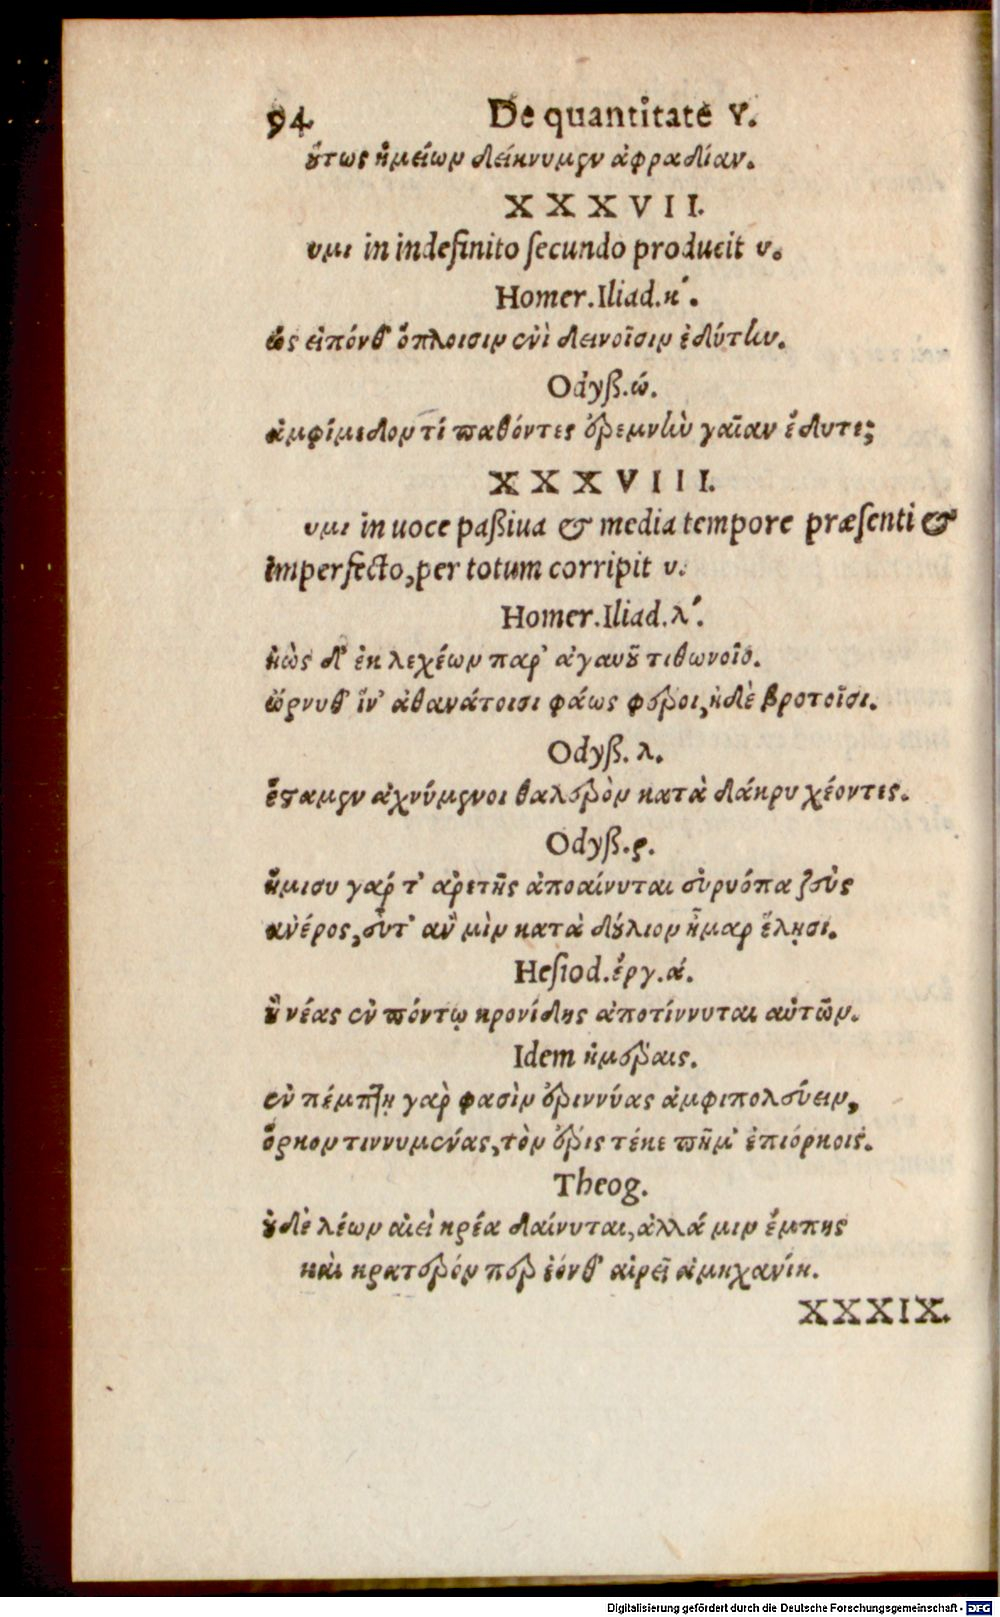 94 De quantitate υ.
οὕτως ἡμείων δείκνυμεν ἀφραδίαν.
XXXVII.
υμι in indefinito ſecundo producit υ.
Homer. Iliad. κ´.
ὣς εἰπόνθ᾽ ὅπλοισιν ἐνὶ δεινοῖσιν ἐδύτην.
Odyß. ώ.
ἀμφίμεδον τί παθόντες ἐρεμνὴν γαῖαν ἔδυτε;
XXXVIII.
υμι in uoce paßiua & media tempore præſenti &
imperfecto, per totum corripit υ.
Homer. Iliad. λ´.
ἠὼς δ᾽ ἐκ λεχέων παρ᾽ ἀγαυοῦ τιθωνοῖο.
ὤρνυθ᾽ ἵν᾽ ἀθανάτοισι φάως φέροι, ἠδὲ βροτοῖσι.
Odyß. λ.
ἕσταμεν ἀχνύμενοι θαλερὸν κατὰ δάκρυ χέοντες.
Odyß. ρ.
ἥμισυ γάρ τ᾽ ἀρετῆς ἀποαίνυται εὐρυόπα ζεὺς
ἀνέρος, εὖτ᾽ ἂν μὶν κατὰ δούλιον ἦμαρ ἕλῃσι.
Heſiod. ἔργ. ά.
ἢ νέας ἐν πόντῳ κρονίδης ἀποτίννυται αὐτῶν.
Idem ἡμέραις.
ἐν πέμπτῃ γὰρ φασὶν ἐριννύας ἀμφιπολεύειν,
ὅρκον τιννυμένας, τὸν ἔρις τέκε πῆμ᾽ ἐπιόρκοις.
Theog.
οὐδὲ λέων αἰεὶ κρέα δαίνυται, ἀλλά μιν ἔμπης
καὶ κρατερόν περ ἐόνθ᾽ αἱρεῖ ἀμηχανίη.
XXXIX.
Digitalisierung gefördert durch die Deutsche Forschungsgemeinschaft - DFG